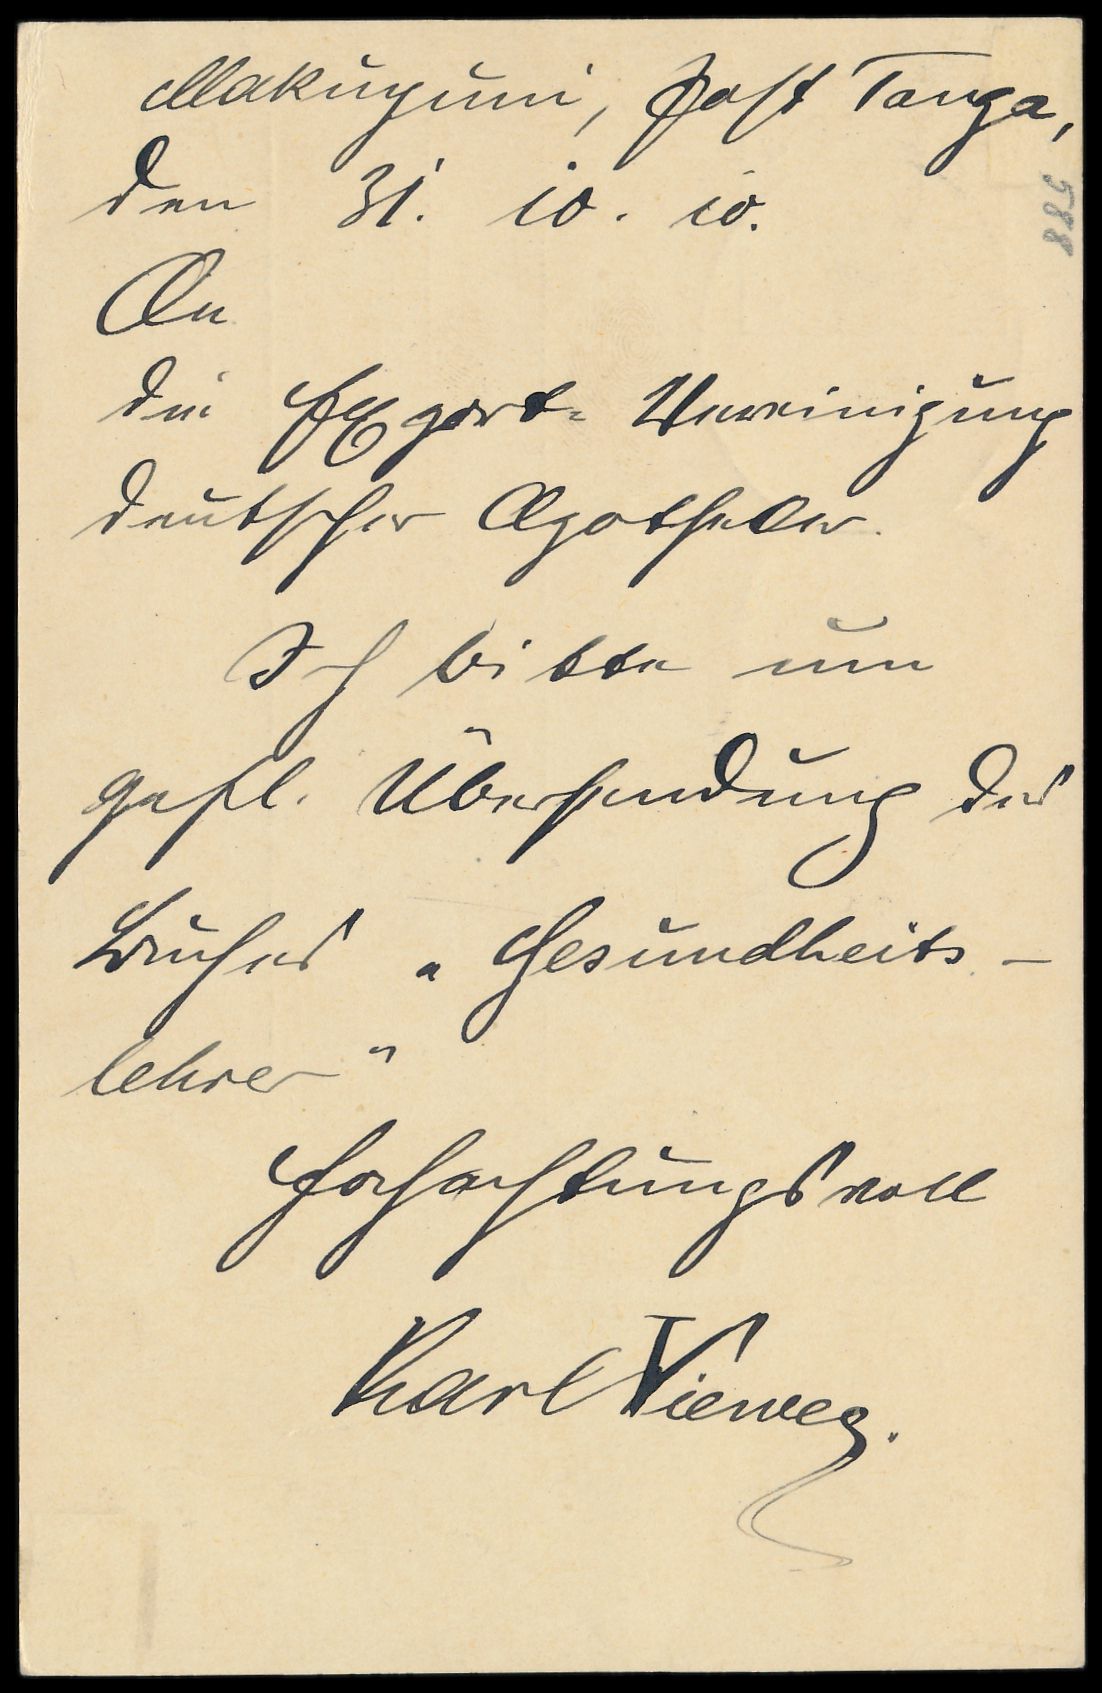 Makuyuni, Post Tanga,
den 31. 10. 10.
588
An
die Export- Vereinigung
deutscher Apotheker.
Ich bitte um
gefl. Übersendung des
Buches „Gesundheits-
lehrer"
Hochachtungsvoll
Karl Vieweg.